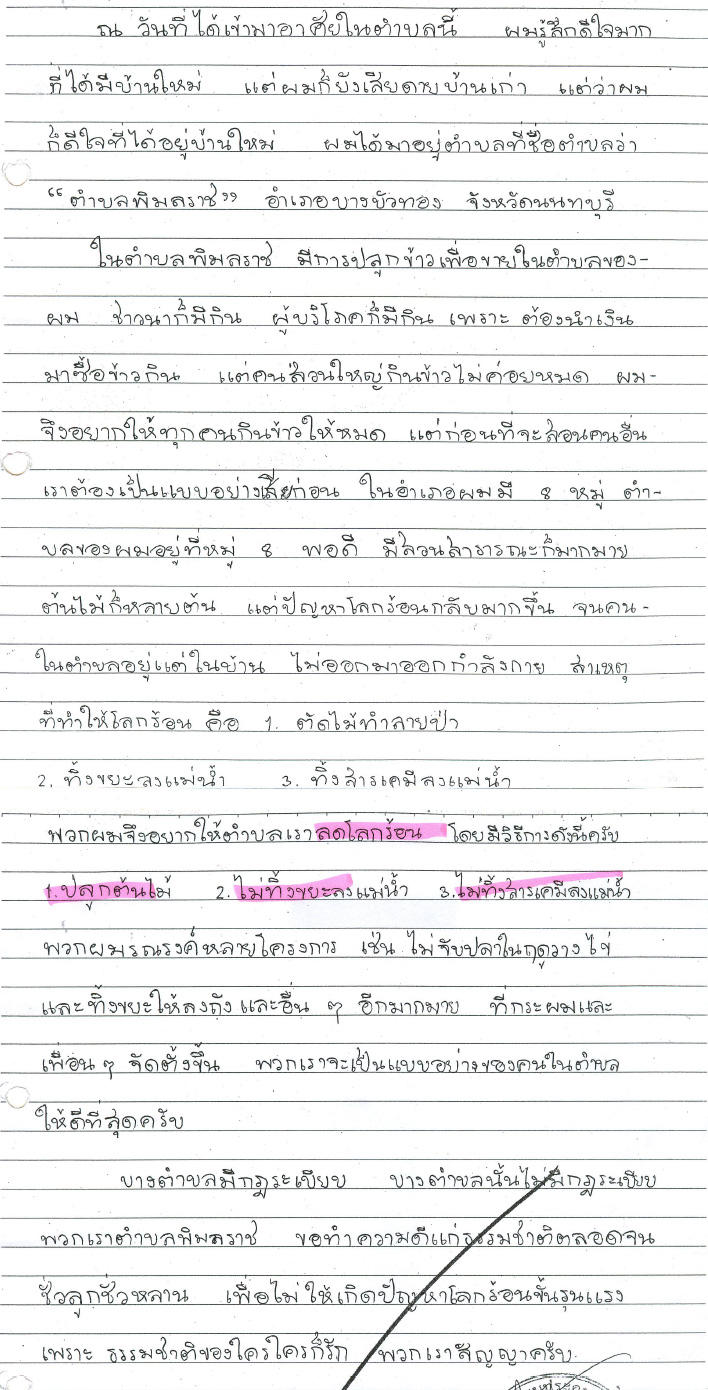 ณ วันที่ได้เข้ามาอาศัยในตำบลนี้ ผมรู้สึกดีใจมาก
ที่ได้มีบ้านใหม่ แต่ผมก็ยังเสียดายบ้านเก่า แต่ว่าผม
ก็ดีใจที่ได้อยู่บ้านใหม่ ผมได้มาอยู่ตำบลที่ชื่อตำบลว่า
“ตำบลพิมลราช” อำเภอบางบัวทอง จังหวัดนนทบุรี
ในตำบลพิมลราช มีการปลูกข้าวเพื่อขายในตำบลของ-
ผม ชาวนาก็มีกิน ผู้บริโภคก็มีกิน เพราะ ต้องนำเงิน
มาซื้อข้าวกิน แต่คนส่วนใหญ่กินข้าวไม่ค่อยหมด ผม-
จึงอยากให้ทุกคนกินข้าวให้หมด แต่ก่อนที่จะสอนคนอื่น
เราต้องเป็นแบบอย่างเสียก่อน ในอำเภอผมมี 8 หมู่ ตำ-
บลของผมอยู่ที่หมู่ 8 พอดี มีสวนสาธารณะก็มากมาย
ต้นไม้ก็หลายต้น แต่ปัญหาโลกร้อนกลับมากขึ้น จนคน-
ในตำบลอยู่แต่ในบ้าน ไม่ออกมาออกกำลังกาย สาเหตุ
ที่ทำให้โลกร้อน คือ 1. ตัดไม้ทำลายป่า
2. ทิ้งขยะลงแม่น้ำ 3. ทิ้งสารเคมีลงแม่น้ำ
พวกผมจึงอยากให้ตำบลเราลดโลกร้อน โดยมีวิธีการดังนี้ครับ
1. ปลูกต้นไม้ 2. ไม่ทิ้งขยะลงแม่น้ำ 3. ไม่ทิ้งสารเคมีลงแม่น้ำ
พวกผมรณรงค์หลายโครงการ เช่น ไม่จับปลาในฤดูวางไข่
และทิ้งขยะให้ลงถัง และอื่น ๆ อีกมากมาย ที่กระผมและ
เพื่อน ๆ จัดตั้งขึ้น พวกเราจะเป็นแบบอย่างของคนในตำบล
ให้ดีที่สุดครับ
บางตำบลมีกฎระเบียบ บางตำบลนั้นไม่มีกฎระเบียบ
พวกเราตำบลพิมลราช ขอทำความดีแก่ธรรมชาติตลอดจน
ชั่วลูกชั่วหลาน เพื่อไม่ให้เกิดปัญหาโลกร้อนขั้นรุนแรง
เพราะ ธรรมชาติของใครใครก็รัก พวกเราสัญญาครับ.